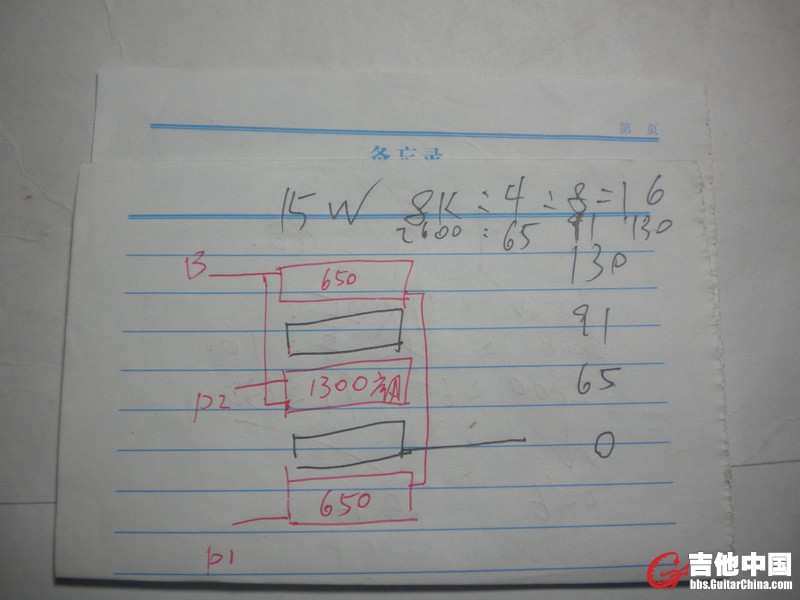 第 页
备忘录
15W 8K:4:8=16
2600:65 91 130
130
B
650
91
1300
65
P2
0
650
P1
吉他中国
bbs.GuitarChina.com